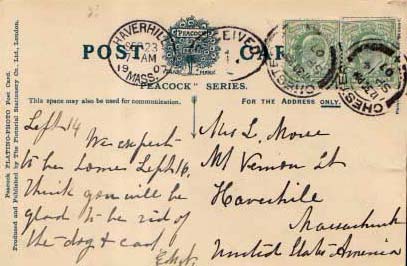 HAVERHILL
23
AM
1907
MASS.
POST
PEACOCK
CARD
"PEACOCK" SERIES.
This space may also be used for communication.
FOR THE ADDRESS ONLY.
CHESTER
CHESTER
Peacock PLATINO-PHOTO Post Card.
Produced and Published by The Pictorial Stationery Co., Ltd., London.
Sept 14
We expect
to be home Sept 16.
Think you will be
glad to be rid of
the dog & cat
Mrs L. Morse
Mt Vernon St
Haverhile
Massachusets
United States America